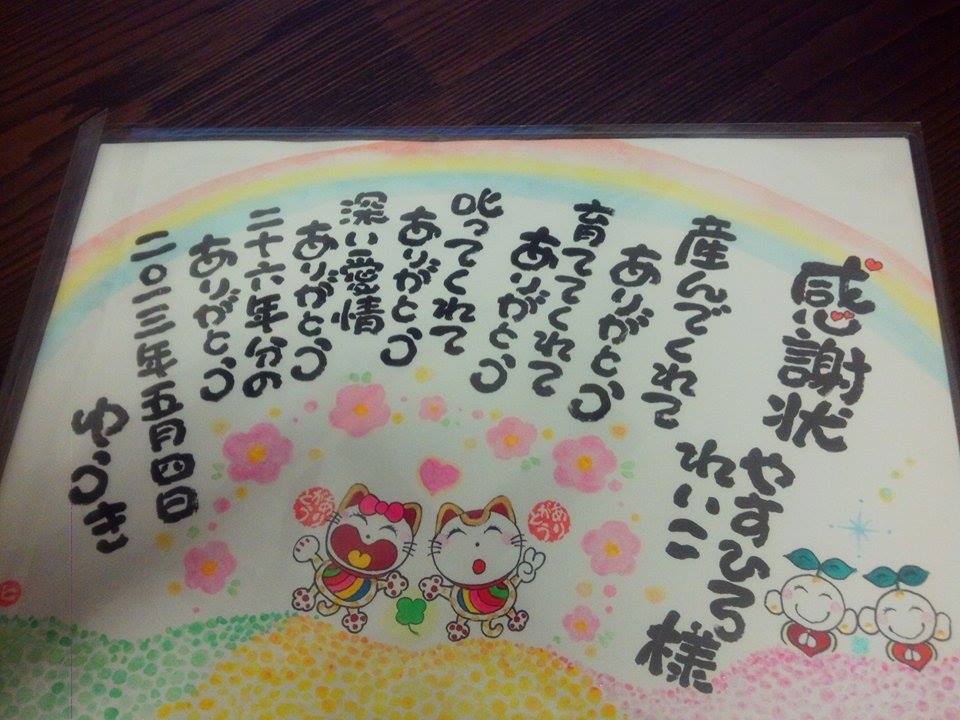 感謝状
やすひろ
れいこ
様
産んでくれて
ありがとう
育ててくれて
ありがとう
叱ってくれて
ありがとう
深い愛情
ありがとう
二十六年分の
ありがとう
二〇一三年五月四日
ゆうき
ありがとう
ありがとう